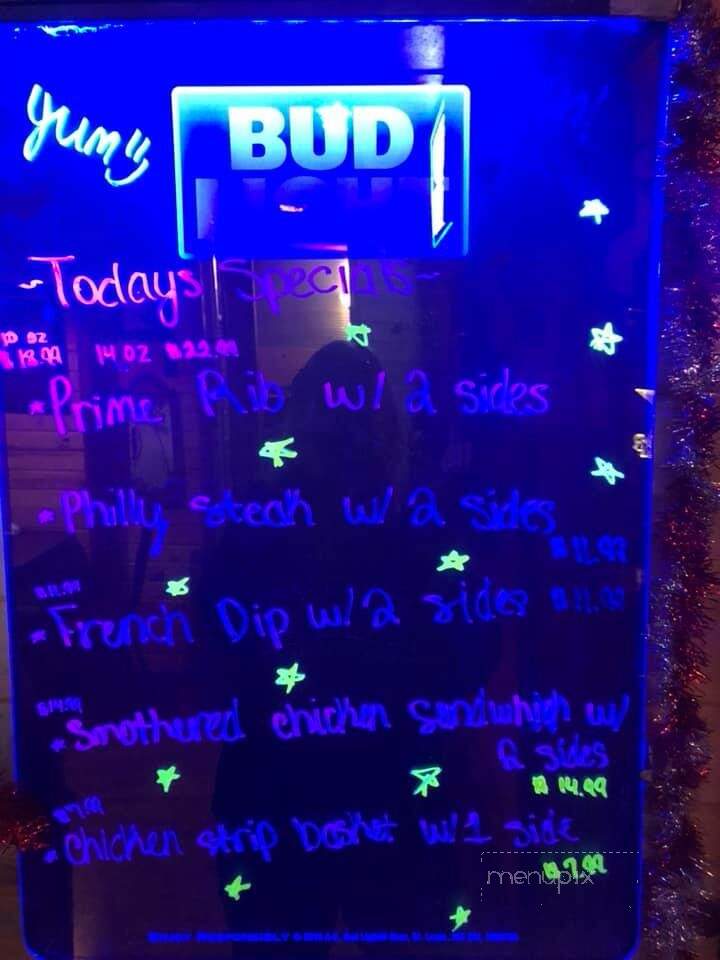 yumy
BUD
LIGHT
~Todays Specials~
14 OZ $22.99
$18.99
*Prime Rib w/ 2 sides
*Philly steak w/ 2 sides
$11.99
*French Dip w/2 sides $11.99
$14.99
*Smothured chicken sandwhich w/
2 sides
$14.99
$7.99
*chicken strip basket w/1 side
$7.99
menupix